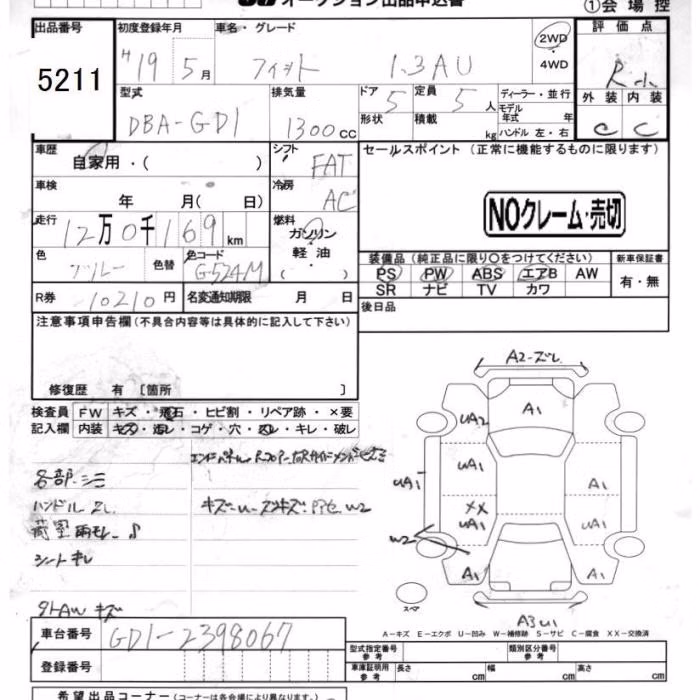 オークション出品申込書
①会場控
出品番号 5211
初度登録年月 H19年5月
車名・グレード フィット 1.3AU
2WD・4WD
評価点 R
外装 内装
C C
型式 DBA-GD1
排気量 1300cc
ドア 5 形状
定員 5人 積載 kg
ディーラー・並行
モデル年式 年
ハンドル 左・右
車歴 自家用・( )
シフト FAT
車検 年 月( 日)
冷房 AC
走行 12万0千169km
燃料 ガソリン 軽油・( )
色 ブルー 色替
色コード G-524M
R券 10210円
名変通知期限 月 日
セールスポイント (正常に機能するものに限ります)
NOクレーム・売切
装備品(純正品に限り〇をつけてください)
新車保証書
PS PW ABS エアB AW
SR ナビ TV カワ
有・無
後日品
注意事項申告欄(不具合内容等は具体的に記入して下さい)
修復歴 有 [箇所 ]
検査員 FW キズ・飛石・ヒビ割・リペア跡・×要
記入欄 内装 キズ・汚レ・コゲ・穴・スレ・キレ・破レ
各部シミ
ハンドルスレ
シートキレ
キズ
A2-ズレ
A1
UA2
UA1
UA1
A1
XX
UA1
UA1
W2
A1
A1
スペア
A3U1
A-キズ E-エクボ U-凹み W-補修跡 S-サビ C-腐食 XX-交換済
車台番号 GD1-2398067
登録番号
型式指定番号 参考
類別区分番号 参考
車庫証明用 参考 長さ cm 幅 cm 高さ cm
希望出品コーナー(コーナーは各会場により異なります。)